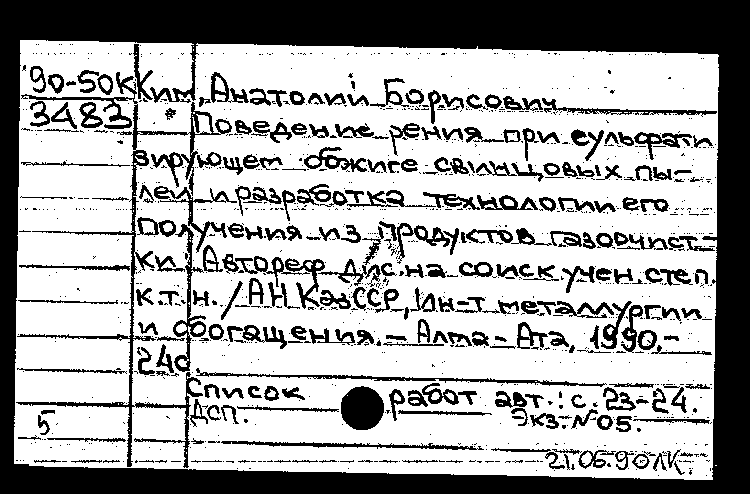 90-50К Ким, Анатолий Борисович
3483 Поведение рения при сульфати
зирующем обжиге свинцовых пы-
лей и разработка технологии его
получения из продуктов газоочист-
ки: Автореф. дис. на соиск. учен. степ.
к.т.н. / АН КазССР, Ин-т металлургии
и обогащения. – Алма-Ата, 1990.-
24с.
Список работ авт.: с. 23-24.
ДСП. Экз. № 05.
5
21.06.90 ЛК.